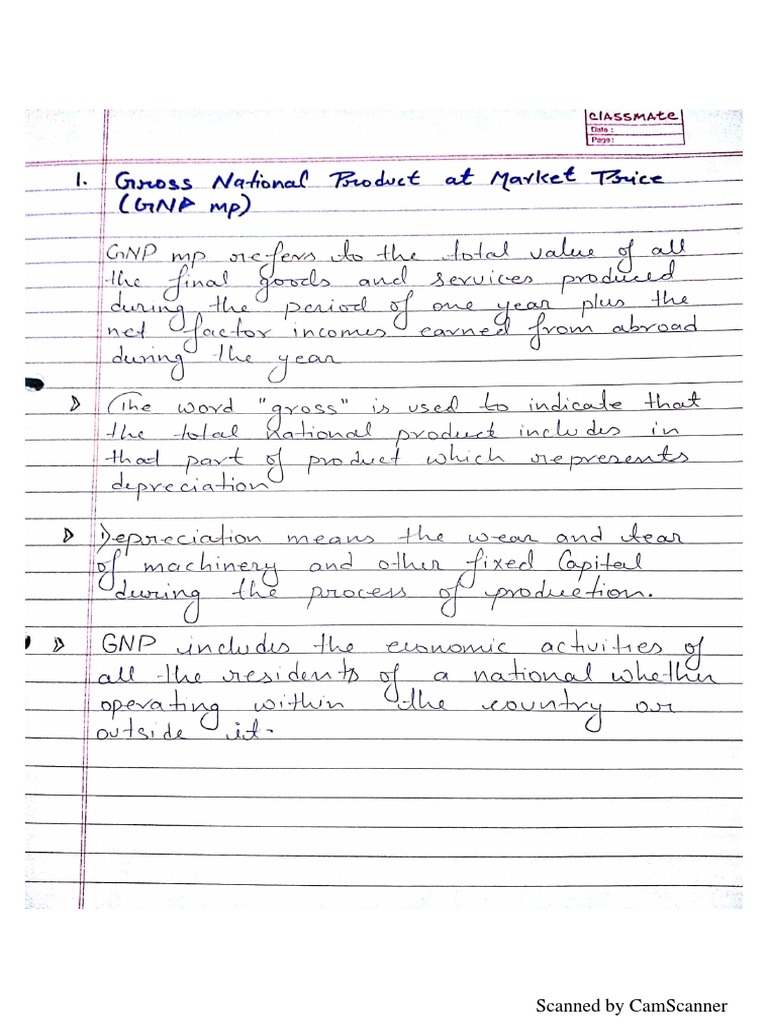 CLASSMATE
Date :
Page :
1. Gross National Product at Market Price
(GNP mp)
GNP mp refers to the total value of all
the final goods and services produced
during the period of one year plus the
net factor incomes earned from abroad
during the year
The word "gross" is used to indicate that
the total national product includes in
that part of product which represents
depreciation
Depreciation means the wear and tear
of machinery and other fixed Capital
during the process of production.
GNP includes the economic activities of
all the residents of a national whether
operating within the country or
outside it.
Scanned by CamScanner